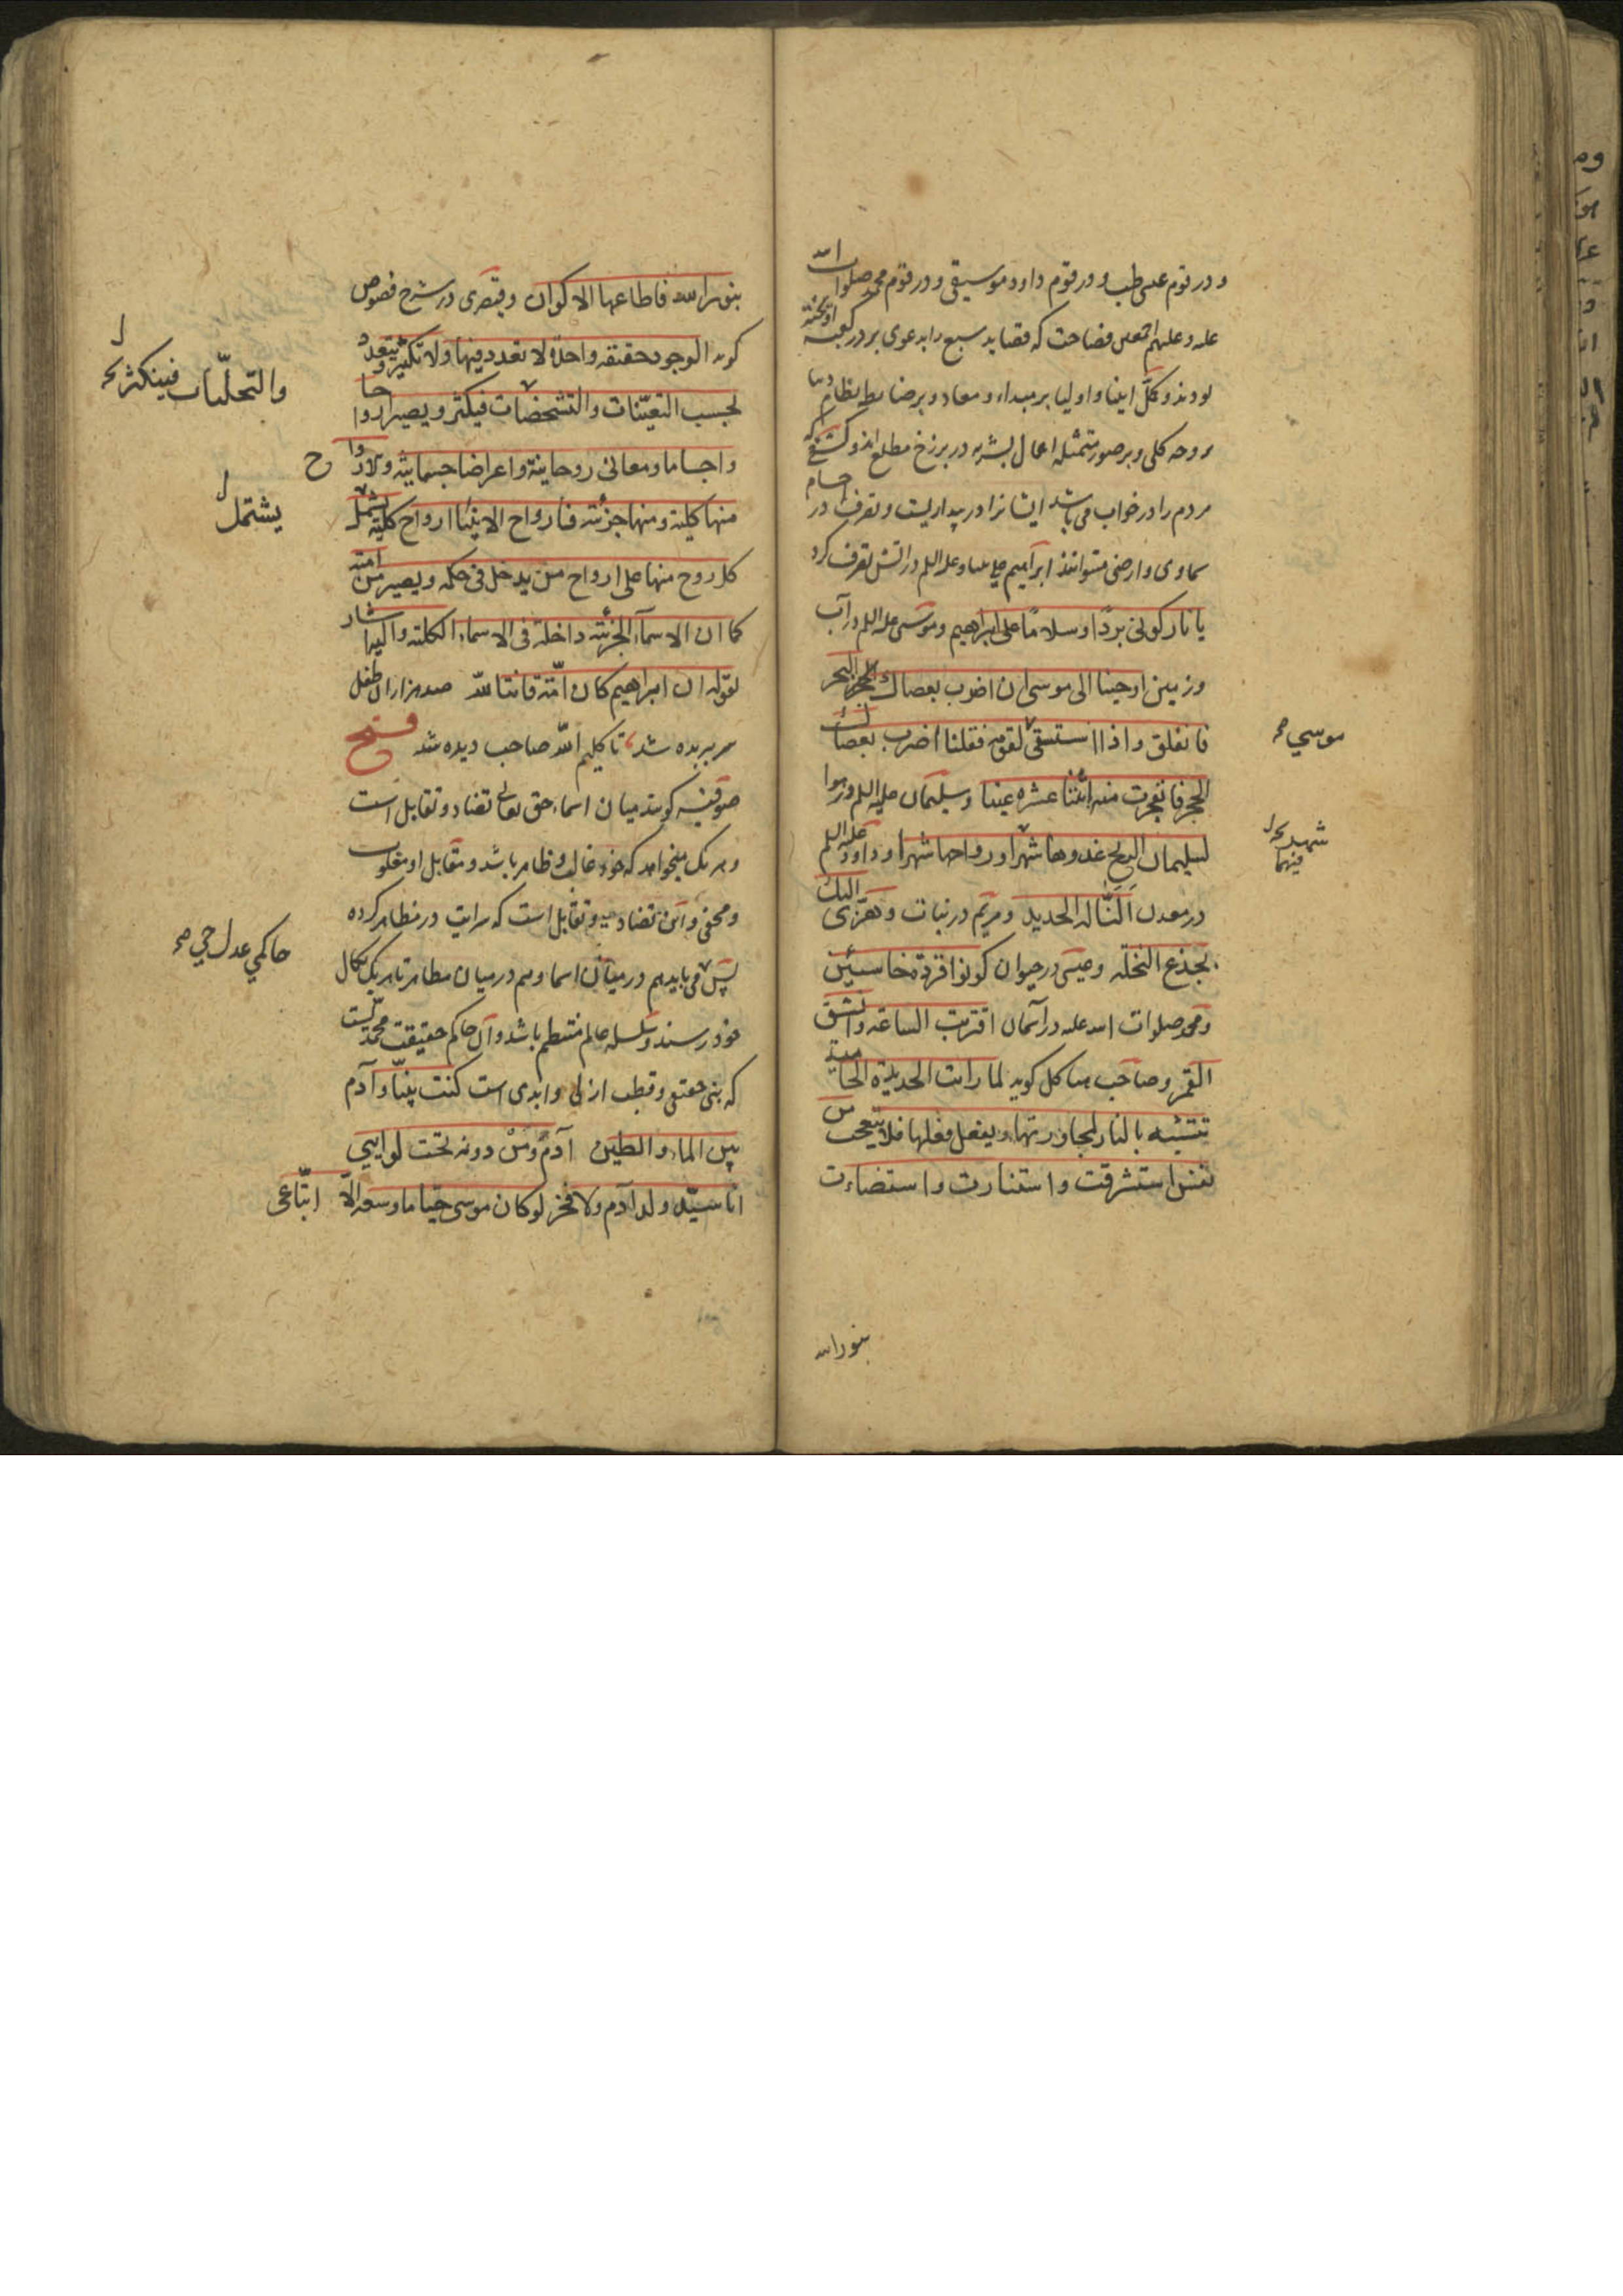 و در قوم عیسی طب و در قوم داود موسیقی و در قوم محمد صلوات الله
علیه و علیهم اجمعین فصاحت که قصاید سبع را بدعوی بر در کعبه آویخته
بودند و کمّل انبیا و اولیا بر مبداء و معاد و بر ضابط نظام دنیا
بر وجه کلی و بر صور متمثله اعمال بشریه در برزخ مطلع اند و کشفی که
مردم را در خواب می باشد ایشانرا در بیداریست و تصرف در اجسام
سماوی و ارضی میتوانند ابراهیم علی نبینا و علیه السلم در آتش تصرف کرد
یا نار کونی بردًا و سلامًا علی ابراهیم و موسی علیه السلم در آب
و زمین اوحینا الی موسی ان اضرب بعصاك البحر
فانفلق و اذا استسقی لقومه فقلنا اضرب بعصاك
موسي صح
الحجر فانفجرت منه اثنتا عشره عینا و سلیمان علیه السلم در هوا
لسلیمان الریح غدوها شهرا و رواحها شهرا و داود علیه السلم
شهر
فیهما
در معدن النّا له الحدید و مریم در نبات و هزّی الیك
بجذع النخله و عیسی در حیوان کونوا قردة خاسئین
و محمد صلوات الله علیه در آسمان اقتربت الساعة و انشق
القمر و صاحب هیاکل کوید لما رایت الحدیدة الحامیة
تتشبه بالنار لمجاورتها و یفعل فعلها فلا یتعجب من
نفس استشرقت و استنارت و استضاءت
بنور الله
بنور الله فاطاعها الاکوان و قیصری در شرح فصوص
کوید الوجود حقیقه واحدة لا تعدد فیها ولا تکثیر و یتعدد
بحسب التعیّنات و التشخصات فیکثر و یصیر ارواحا
والتجلّیات فیتکثر
و اجساما و معانی روحانیة و اعراضا جسمانیّه والارواح
منها کلیة و منها جزئیه فارواح الانبیا ارواح کلیّه یشمل
یشتمل
کل روح منها علی ارواح من یدخل فی حکمه و یصیر من امته
کما ان الاسمآء الجزئیّه داخلة فی الاسماء الکلیّة و الیها اشار
بقوله ان ابراهیم کان امّة قانتا للّه صد هزاران طفل
سر ببریده شد تا کلیم اللّه صاحب دیده شد فتح
صوفیّه کویند میان اسماء حق تعالی تضاد و تقابل است
و هر یک میخواهد که خود غالب و ظاهر باشد و مقابل او مغلوب
و مخفی و این تضاد و تقابل است که سرایت در مظاهر کرده
پس می باید هم در میان اسما و هم در میان مظاهر تا هر یک بکمال
حاکمي عدل حي صح
خود رسند و سلسله عالم منتظم باشد و آن حاکم حقیقت محمّدیست
که نبی حقیقی و قطب ازلی و ابدی است کنت نبیّا و آدم
بین الماء و الطین آدم و من دونه تحت لوایی
انا سیّد ولد آدم ولا فخر لو کان موسی حیّا ما وسعه الّا اتّباعی